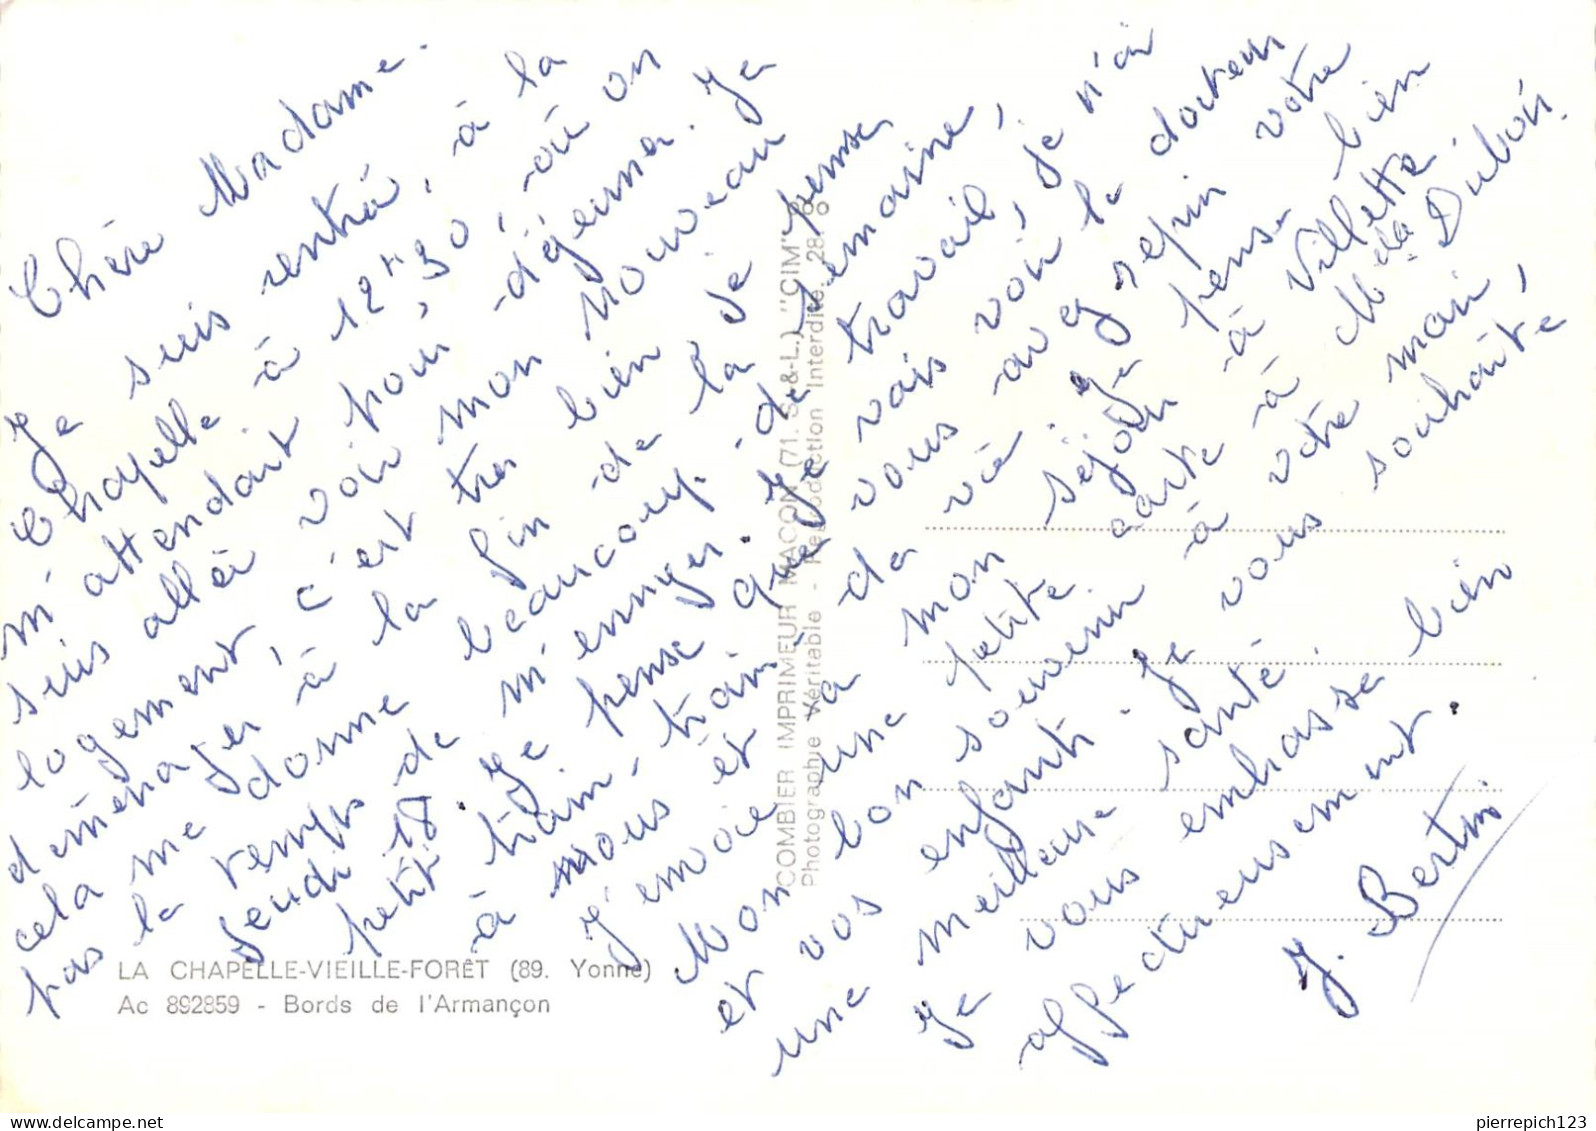 Chère Madame.
Je suis rentré, à la
Chapelle à 12h30, où on
m'attendait pour déjeuner. Je
suis allér voir mon nouveau
logement, c'est très bien je pense
déménager à la fin de la semaine,
cela me donne beaucoup de travail, je n'ai
pas le temps de m'ennuyer. Je vais voir le docteur
Jeudi 18. Je pense que vous avez repin votre
petit train-train de vie. Je pense bien
à vous et à mon séjour à Villette.
J'emvoie une petite carte à Mme Dubois.
Mon bon souvenir à votre mari,
et vos enfants. Je vous souhaite
une meilleure santé.
Je vous embrasse bien
affectueusement.
J. Bertin
COMBIER IMPRIMEUR MACON (71. S.-&-L.) "CIM"
Photographie Véritable - Reproduction Interdite.
LA CHAPELLE-VIEILLE-FORÊT (89. Yonne)
Ac 892859 - Bords de l'Armançon
pierrepich123